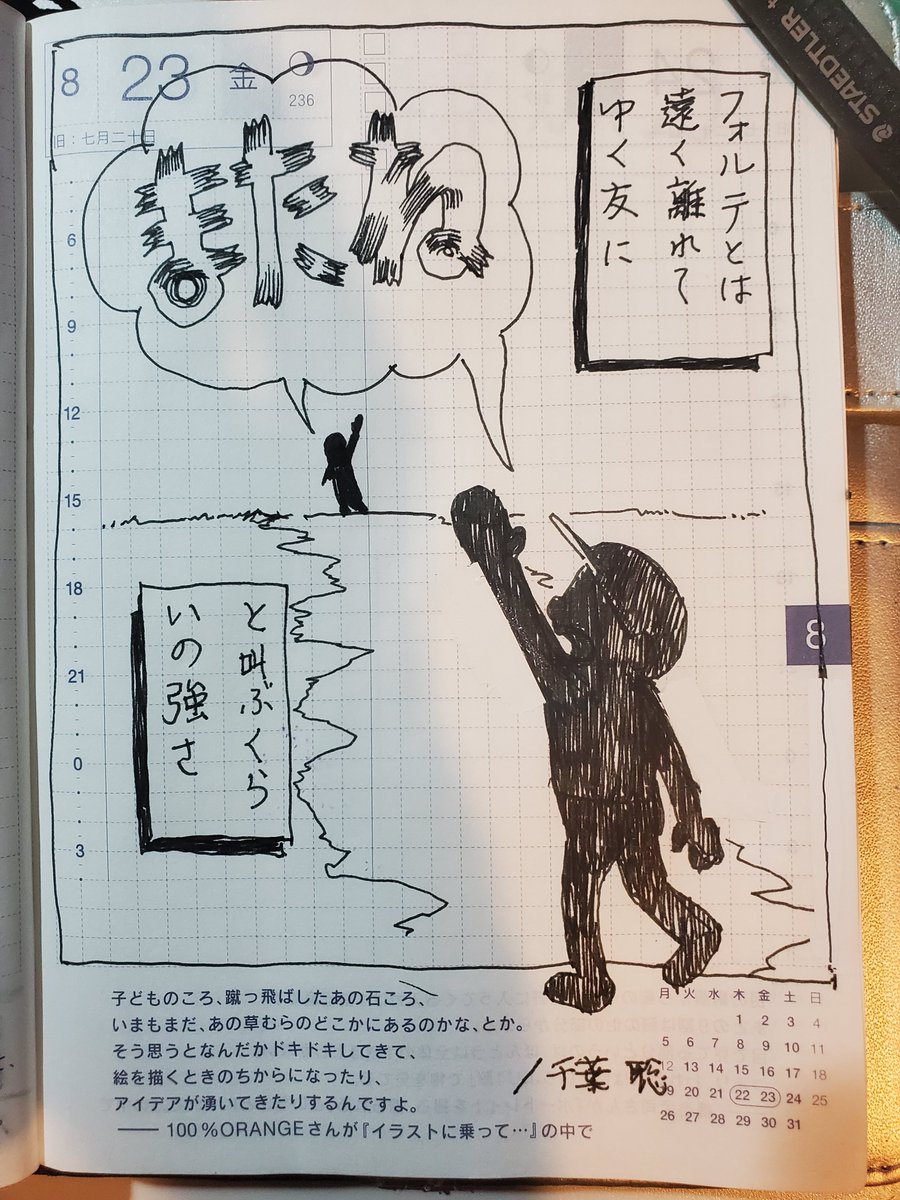 8 23 金
236
旧：七月二十日
フォルテとは
遠く離れて
ゆく友に
またね
と叫ぶくら
いの強さ
6
9
12
15
18
21
0
3
8
子どものころ、蹴っ飛ばしたあの石ころ、
いまもまだ、あの草むらのどこかにあるのかな、とか。
そう思うとなんだかドキドキしてきて、
絵を描くときのちからになったり、
アイデアが湧いてきたりするんですよ。
── 100％ORANGEさんが『イラストに乗って…』の中で
/千葉 聡
月 火 水 木 金 土 日
1 2 3 4
5 6 7 8 9 10 11
12 13 14 15 16 17 18
19 20 21 22 23 24 25
26 27 28 29 30 31
STAEDTLER